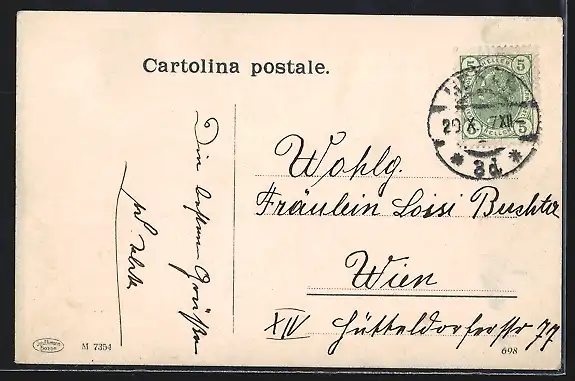 Cartolina postale.
5 5
HELLER
29.X. 7 XII
* 3d. *
Die besten Grüße
Wohlg.
Fräulein Loisi Buchta
Wien
XIV Hütteldorferstr 77
M 7354
698